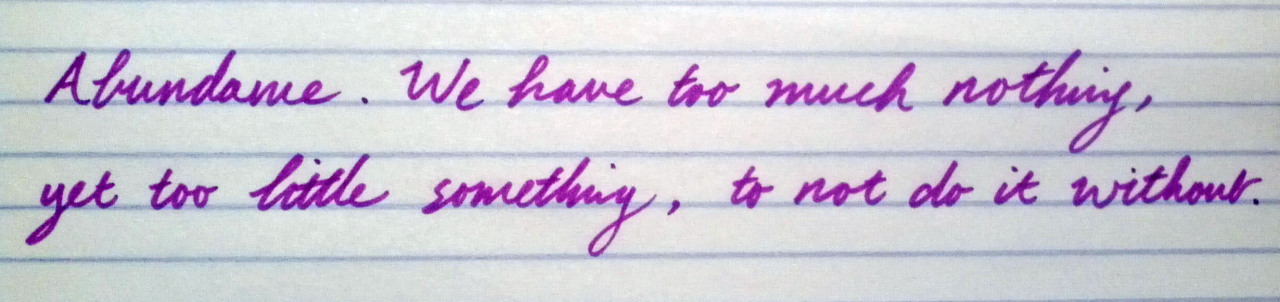 Abundance. We have too much nothing,
yet too little something, to not do it without.